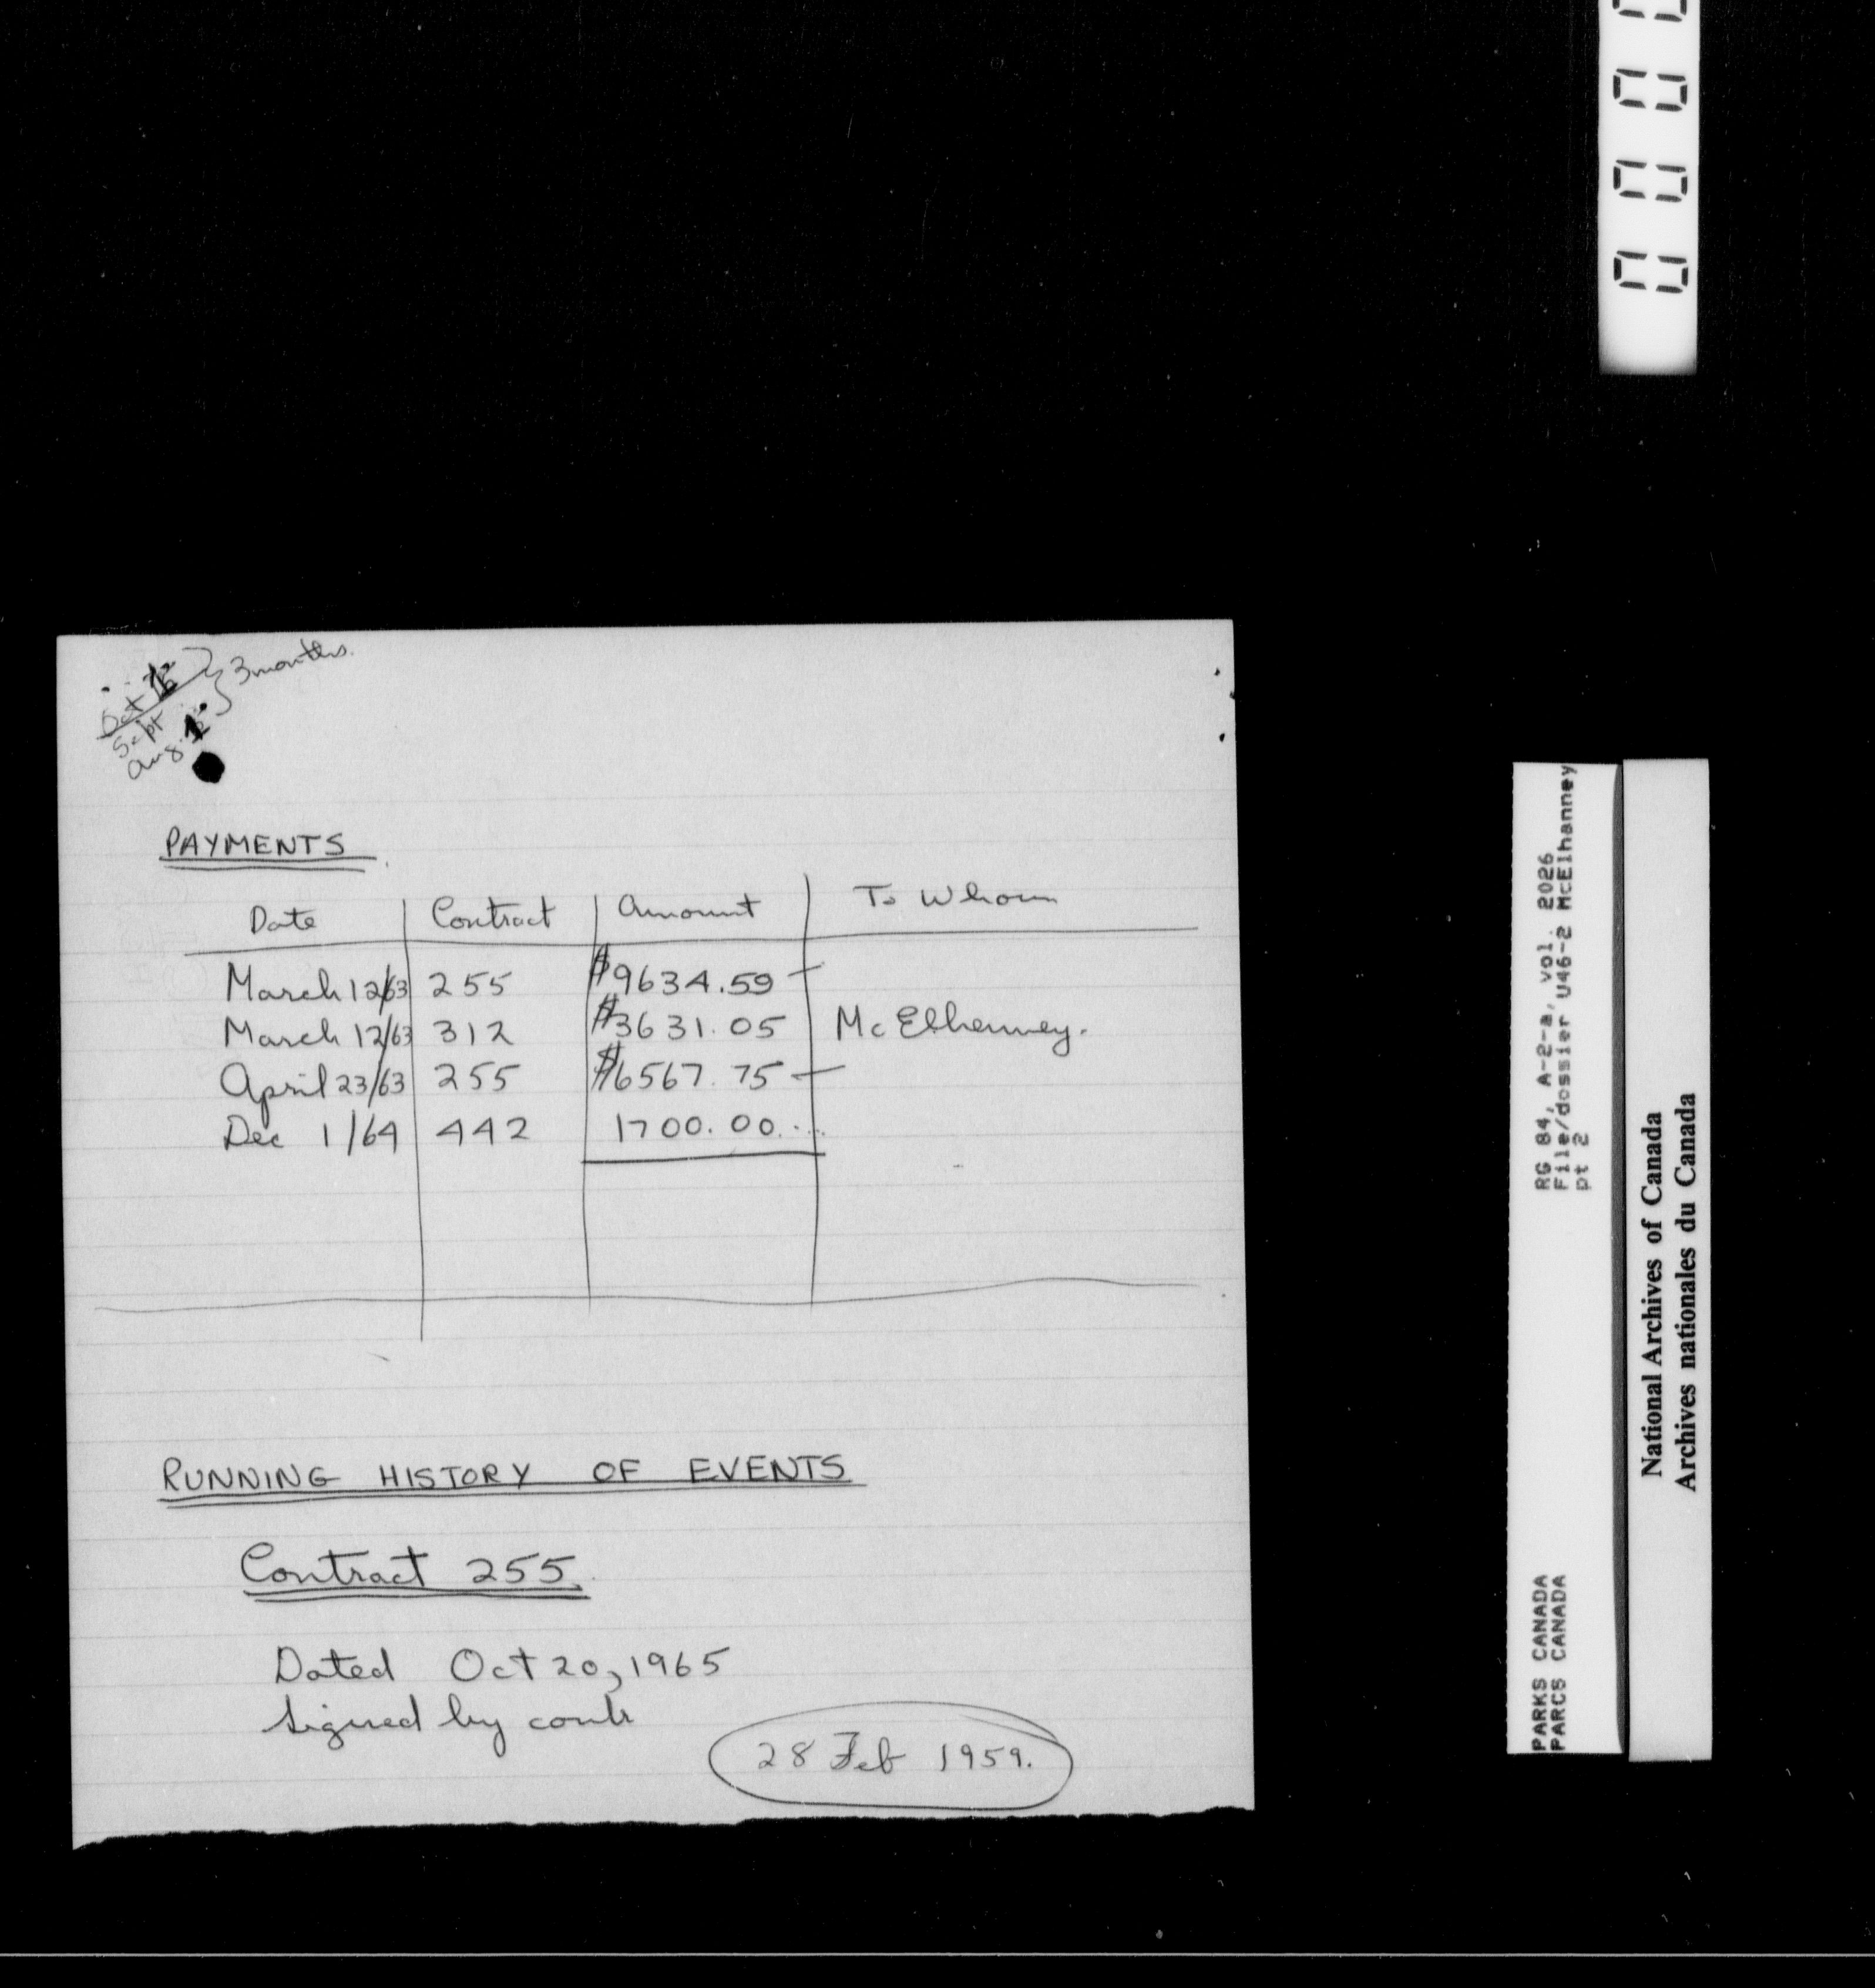 3 months.
Oct
Sept
Aug.
PAYMENTS
Date Contract Amount To Whom
March 12/63 255 $9634.59
March 12/63 312 $3631.05 McElhenney.
April 23/63 255 $6567.75
Dec 1/64 442 1700.00
RUNNING HISTORY OF EVENTS
Contract 255.
Dated Oct 20, 1965
Signed by contr
28 Feb 1959.
RG 84, A-2-a, vol. 2026
File/dossier U46-2 McElhanney
pt 2
PARKS CANADA
PARCS CANADA
National Archives of Canada
Archives nationales du Canada
0 0 0 0